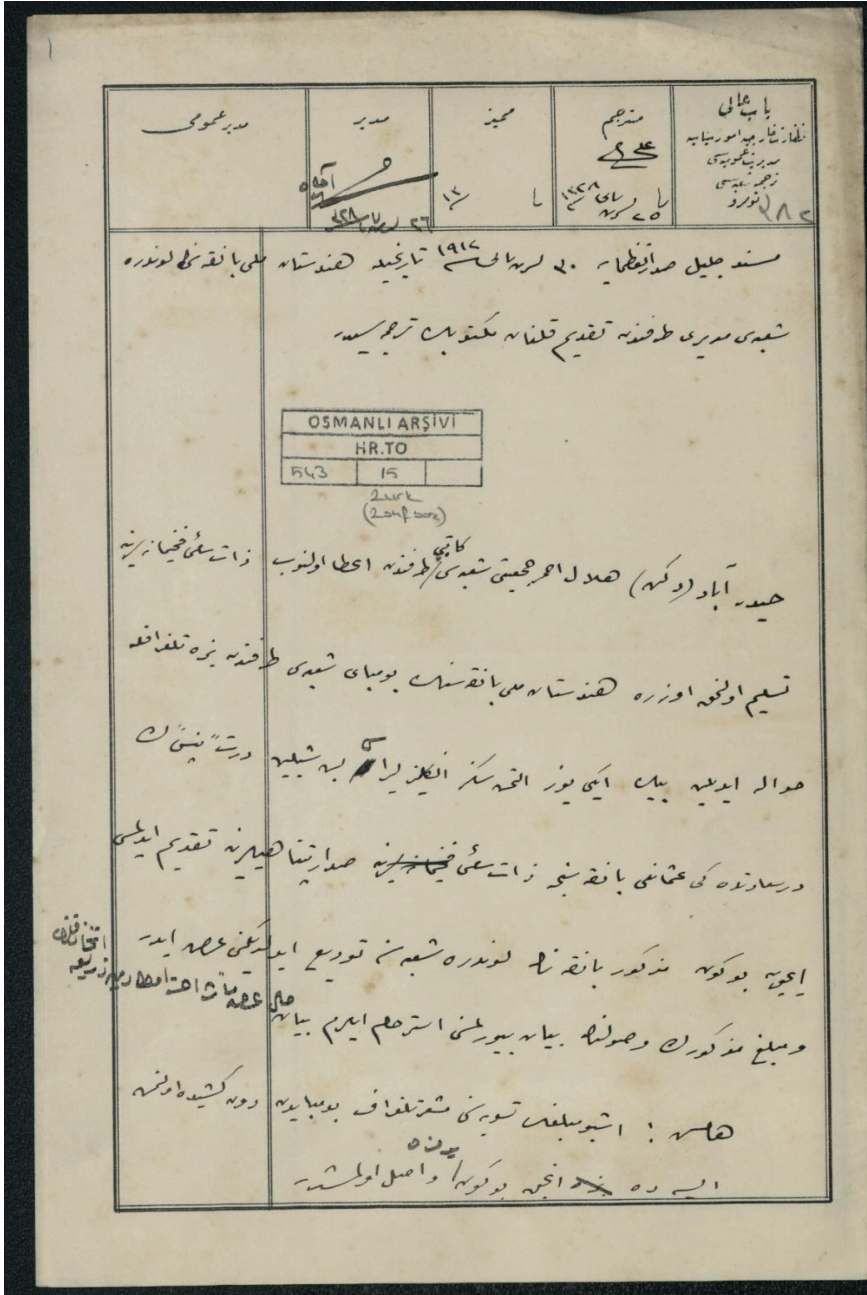 باب عالی
نظارت خارجیه امور سیاسیه
مدیریت عمومیه‌سی
ترجمه شعبه‌سی
نومرو
٣٨٢
مترجم
٢٥ تشرین ثانی ١٣٢٨
ممیز
١٣
مدیر
٢٦ ٣٢٨
مدیر عمومی
مسند جلیل صدارتعظمایه ٣٠ تشرین ثانی سنه ١٩١٢ تاریخیله هندوستان ملی بانقه‌سنك لوندره
شعبه‌سی مدیری طرفندن تقدیم قلنان مکتوبك ترجمه‌سیدر
OSMANLI ARŞİVİ
HR.TO
543 15
حیدر آباد (دکن) هلال احمر جمعیتی شعبه‌سی كاتبی طرفندن اعطا اولنوب ذات سامئ فخیمانه‌لرینه
تسلیم اولنمق اوزره هندوستان ملی بانقه‌سنك بومبای شعبه‌سی طرفندن بزه تلغرافله
حواله ایدیلن بیك ایکی یوز التمش سکز انکلیز لیرا بش شیلین درت "پنس" ك
درسعادتده کی عثمانلی بانقه‌سنجه ذات سامئ صدارتپناهیلرینه تقدیم ایدلمسی
ایچون بوکون مذکور بانقه‌نك لوندره شعبه‌سنه تودیع ایدلدیکنی عرض ایدر
و مبلغ مذکورك وصولنك بیان بیورلمسنی استرحام ایلرم
هامش : اشبو مبلغك تسویه‌سنی مشعر تلغراف بومبایدن دون کشیده اولنمش
ایسه ده انجق بوکون یدمزه واصل اولمشدر